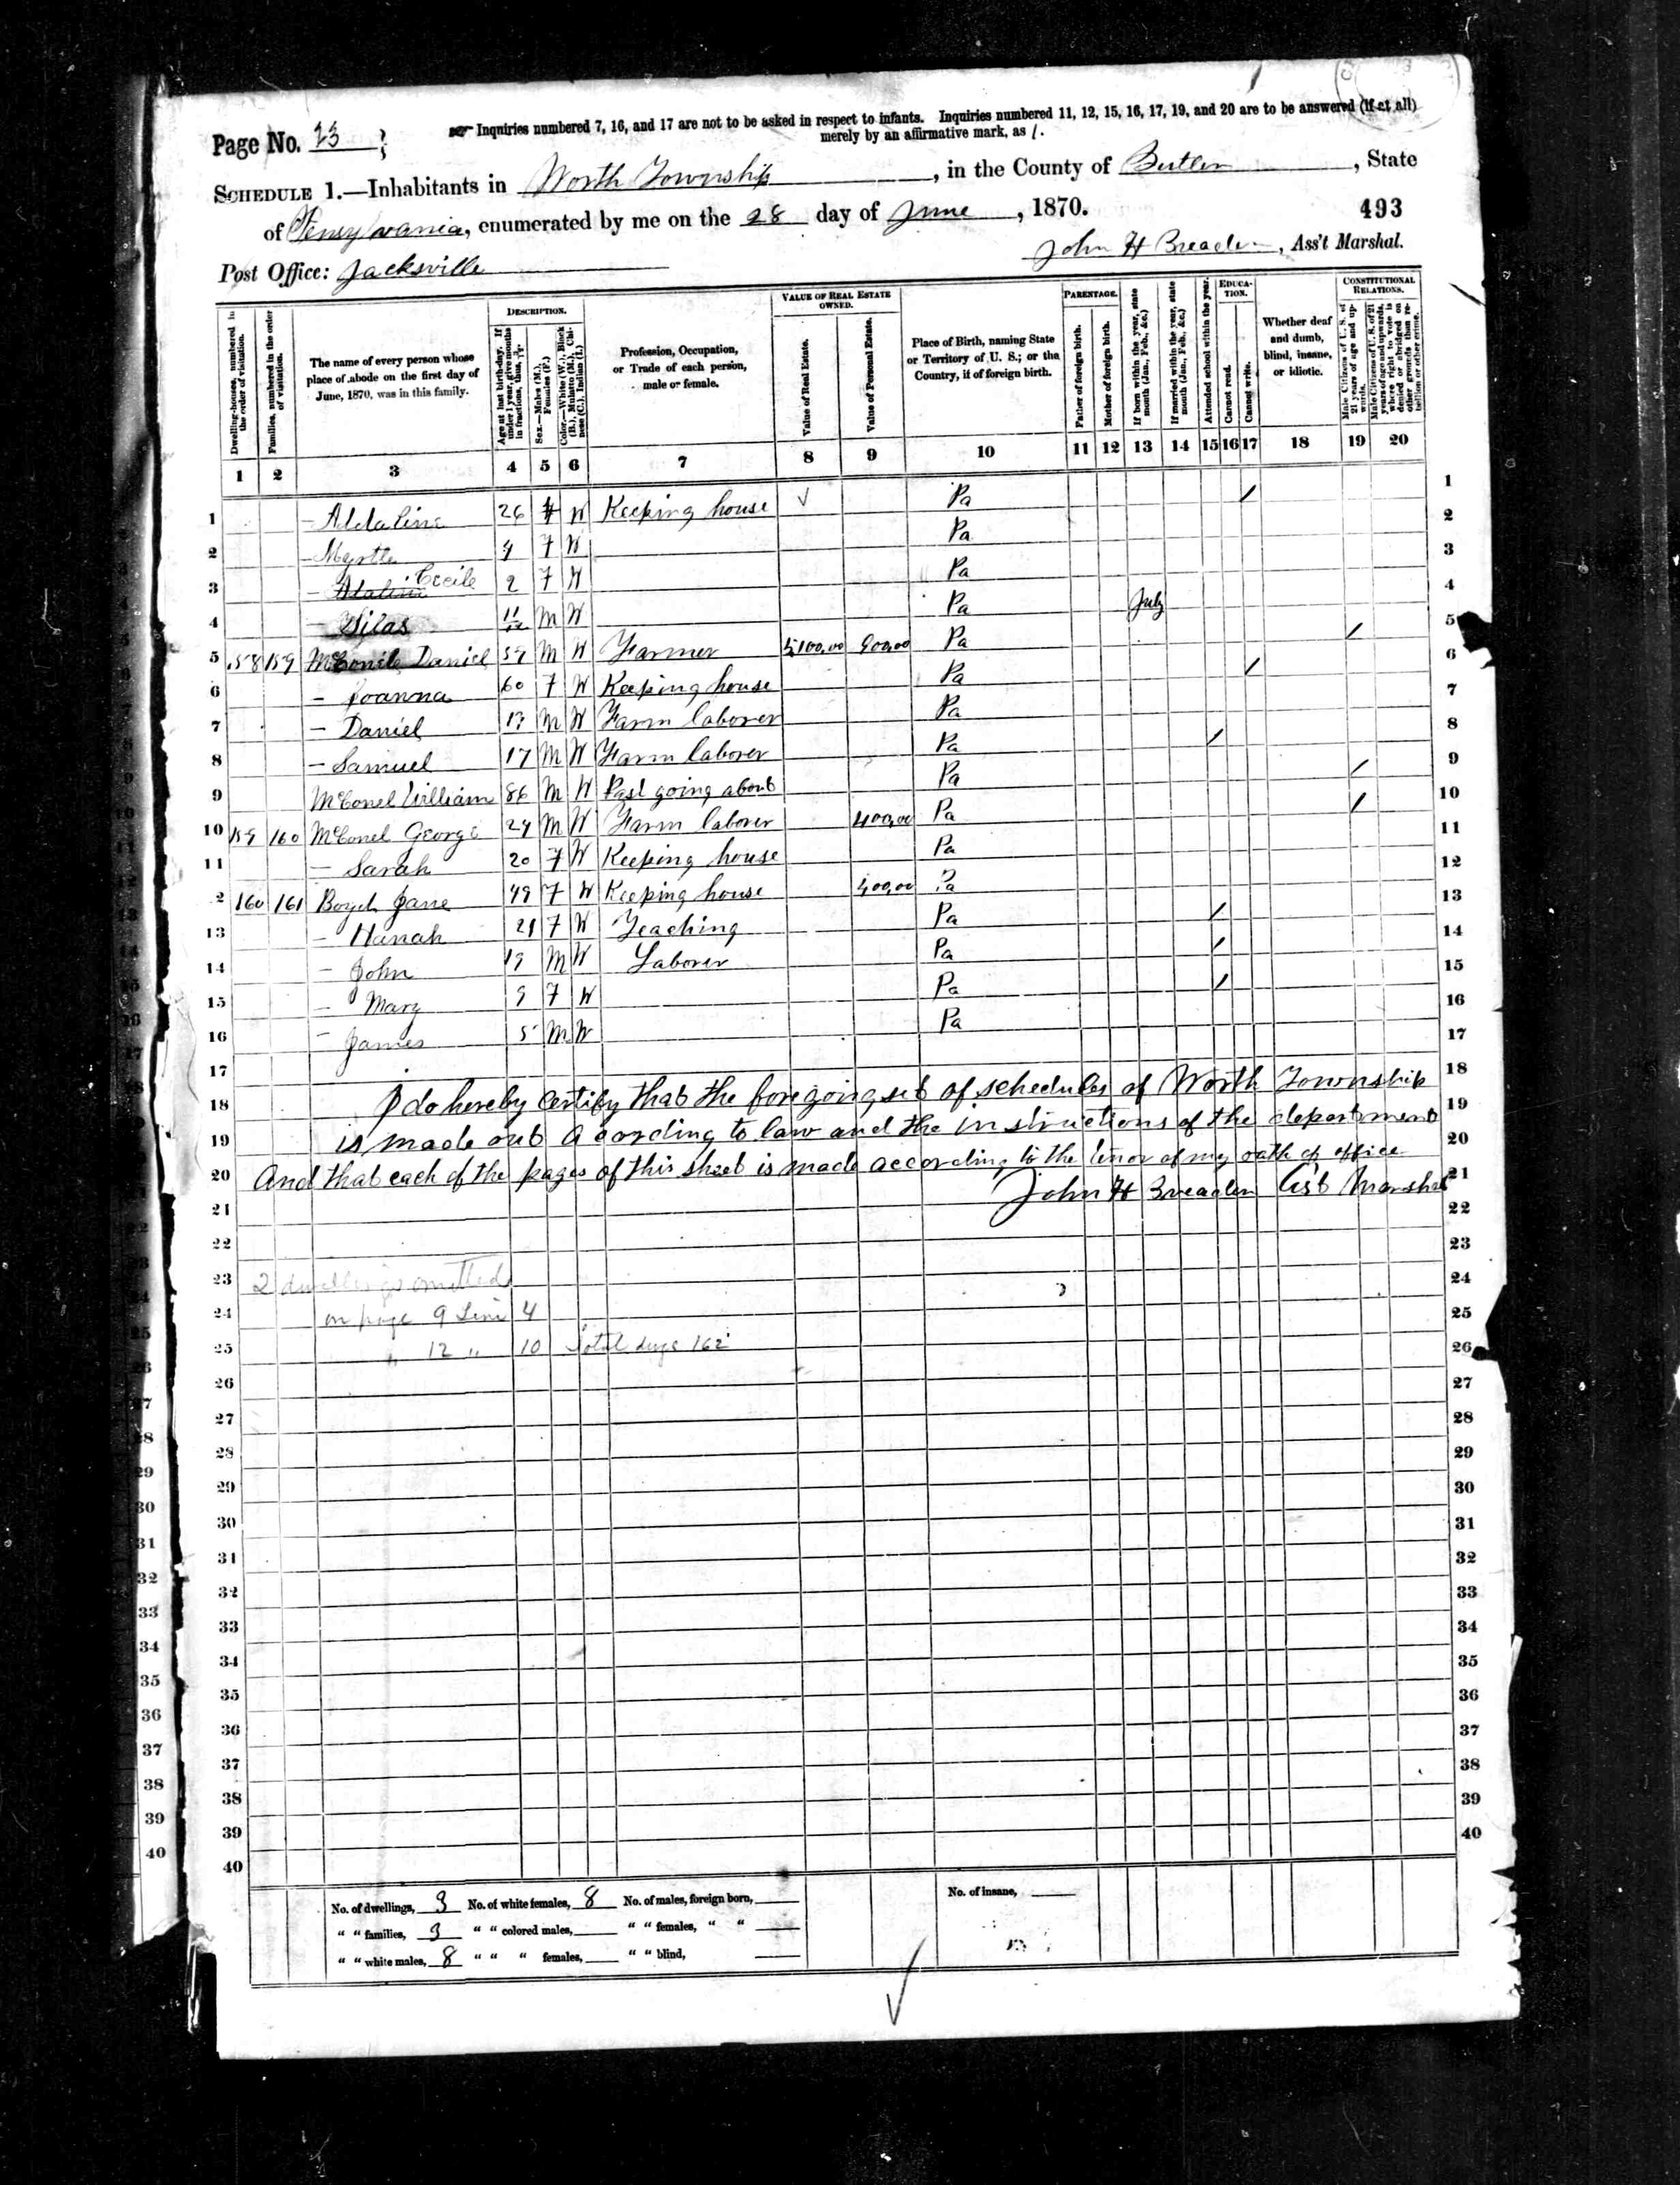 Page No. 23
Inquiries numbered 7, 16, and 17 are not to be asked in respect to infants. Inquiries numbered 11, 12, 15, 16, 17, 19, and 20 are to be answered (if at all)
merely by an affirmative mark, as /.
SCHEDULE 1.—Inhabitants in Worth Township, in the County of Butler, State
of Pensylvania, enumerated by me on the 28 day of June, 1870.
493
Post Office: Jacksville
John H Breaden, Ass't Marshal.
Dwelling-houses, numbered in the order of visitation.
Families, numbered in the order of visitation.
The name of every person whose place of abode on the first day of June, 1870, was in this family.
DESCRIPTION.
Age at last birth-day. If under 1 year, give months in fractions, thus, 3/12.
Sex.—Males (M.), Females (F.)
Color.—White (W.), Black (B.), Mulatto (M.), Chinese (C.), Indian (I.)
Profession, Occupation, or Trade of each person, male or female.
VALUE OF REAL ESTATE OWNED.
Value of Real Estate.
Value of Personal Estate.
Place of Birth, naming State or Territory of U. S.; or the Country, if of foreign birth.
PARENTAGE.
Father of foreign birth.
Mother of foreign birth.
If born within the year, state month (Jan., Feb., &c.)
If married within the year, state month (Jan., Feb., &c.)
EDUCATION.
Attended school within the year.
Cannot read.
Cannot write.
Whether deaf and dumb, blind, insane, or idiotic.
CONSTITUTIONAL RELATIONS.
Male Citizens of U. S. of 21 years of age and upwards.
Male Citizens of U. S. of 21 years of age and upwards, where right to vote is denied or abridged on other grounds than rebellion or other crime.
1 2 3 4 5 6 7 8 9 10 11 12 13 14 15 16 17 18 19 20
1 — Addaline 26 F W Keeping house Pa / 1
2 — Myrtle 4 F W Pa 2
3 — Cecile 2 F W Pa 3
4 — Silas 11/12 M W Pa July 4
5 158 159 Daniel 59 M W Farmer Pa / 5
6 — Joanna 60 F W Keeping house Pa / 6
7 — Daniel M W Farm laborer Pa 7
8 — Samuel 17 M W Farm laborer Pa / 8
9 McConel William 86 M W Past going about Pa / 9
10 159 160 McConel George 29 M W Farm laborer 400,00 Pa / 10
11 — Sarah 20 F W Keeping house Pa 11
2 160 161 Boyd Jane 49 F W Keeping house Pa 12
13 — Hanah 21 F W Teaching Pa / 13
14 — John 19 M W Laborer Pa / 14
15 — Mary 9 F W Pa / 15
16 — James 5 M W Pa 16
17 17
18 I do hereby certify that the foregoing set of schedules of Worth Township 18
19 is made out acording to law and the instructions of the department 19
20 And that each of the pages of this sheet is made according to the tenor of my oath of office 20
21 John H Breaden Ast Marshal 21
22 22
23 2 dwellings omitted 23
24 on page 9 Line 4 24
25 " 12 " 10 Total dwgs 162 25
26 26
27 27
28 28
29 29
30 30
31 31
32 32
33 33
34 34
35 35
36 36
37 37
38 38
39 39
40 40
No. of dwellings, 3 No. of white females, 8 No. of males, foreign born, No. of insane,
" " families, 3 " " colored males, " " females, " "
" " white males, 8 " " " females, " " blind,